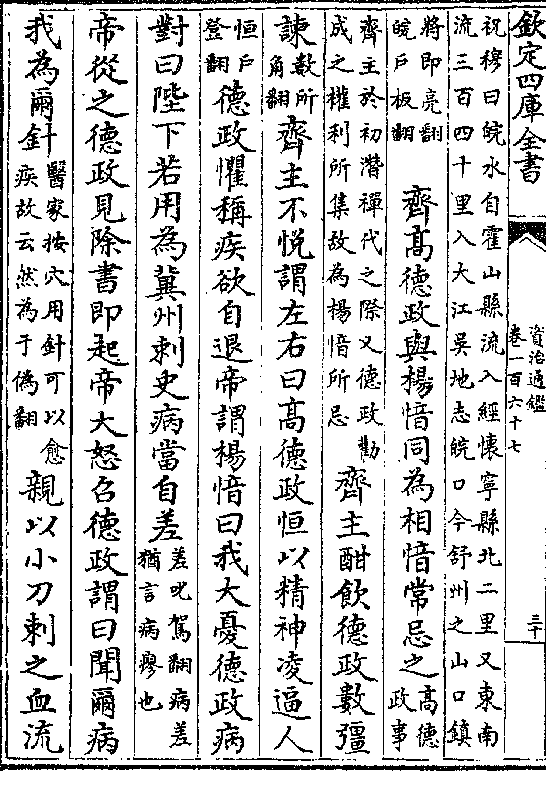 欽定四庫全書
資治通鑑
卷一百六十七
三十
祝穆曰皖水自霍山縣流入經懷寧縣北二里又東南
流三百四十里入大江吳地志皖口今舒州之山口鎮
將即亮翻
皖戶板翻
齊高德政與楊愔同為相愔常忌之
高德
政事
齊主於初潛禪代之際又德政勸
成之權利所集故為楊愔所忌
齊主酣飲德政數彊
諫
數所
角翻
齊主不悅謂左右曰高德政恒以精神凌逼人
恒戶
登翻
德政懼稱疾欲自退帝謂楊愔曰我大憂德政病
對曰陛下若用為冀州刺史病當自差
差叱駕翻病差
猶言病瘳也
帝從之德政見除書即起帝大怒召德政謂曰聞爾病
我為爾針
醫家按穴用針可以愈
疾故云然為于偽翻
親以小刀刺之血流